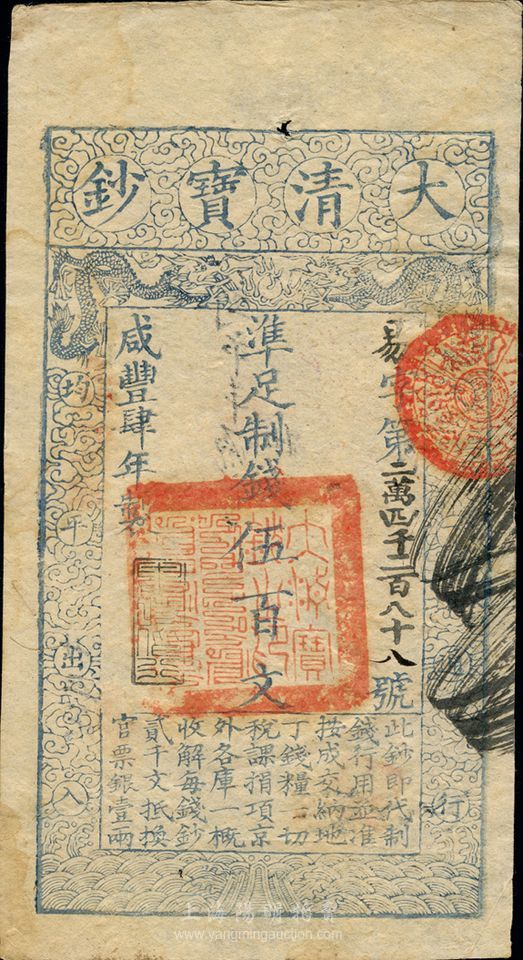 大清寶鈔
易字第二萬四千二百八十八號
準足制錢伍百文
咸豐肆年製
均平出入
通行
此鈔即代制
錢行用並准
按成交納地
丁錢糧一切
稅課捐項京
外各庫一概
收解每錢鈔
貳千文抵換
官票銀壹兩
www.yangmingauction.com